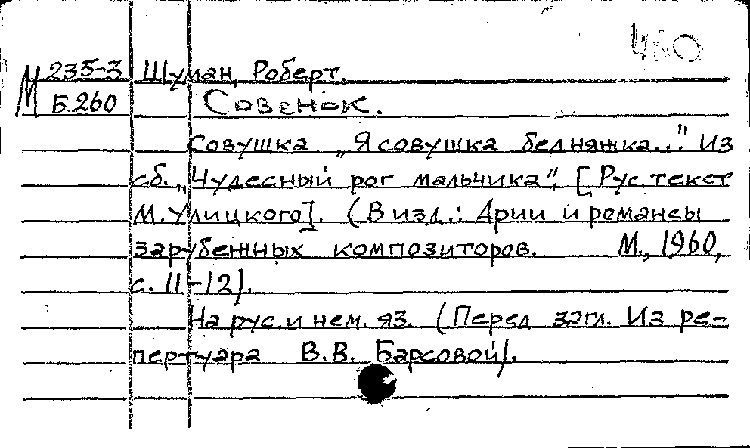 460
М 235-3 Шуман, Роберт.
Б.260 Совенок.
Совушка „Я совушка бедняжка..." Из
сб. „Чудесный рог мальчика", [Рус. текст
М. Улицкого]. (В изд.: Арии и романсы
зарубежных композиторов. М., 1960,
с. 11-12).
На рус. и нем. яз. (Перед загл. Из ре-
пертуара В.В. Барсовой).